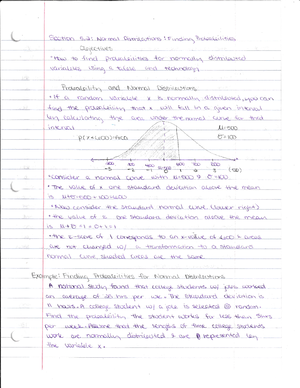 Section 5.2: Normal Distributions: Finding Probabilities
Objectives
• How to find probabilities for normally distributed
variables using a table and technology
Probability and Normal Distributions
• If a random variable x is normally distributed, you can
find the probability that x will fall in a given interval
by calculating the area under the normal curve for that
interval
μ=500
σ=100
• Consider a normal curve with μ=500 σ=100
• The value of x one standard deviation above the mean
is μ+σ=500+100=600
• Now consider the standard normal curve
• The value of z one standard deviation above the mean
is μ+σ=0+1=1
• The z-score of 1 corresponds to an x-value of 600 & areas
are not changed w/ a transformation to a standard
normal curve shaded areas are the same
Example: Finding Probabilities for Normal Distributions
A national study found that college students w/ jobs worked
an average of 25 hrs per week. The standard deviation is
11 hours. A college student w/ a job is selected @ random.
Find the probability the student works for less than 5hrs
per week. Assume that the lengths of time college students
work are normally distributed & are represented by
the variable x.